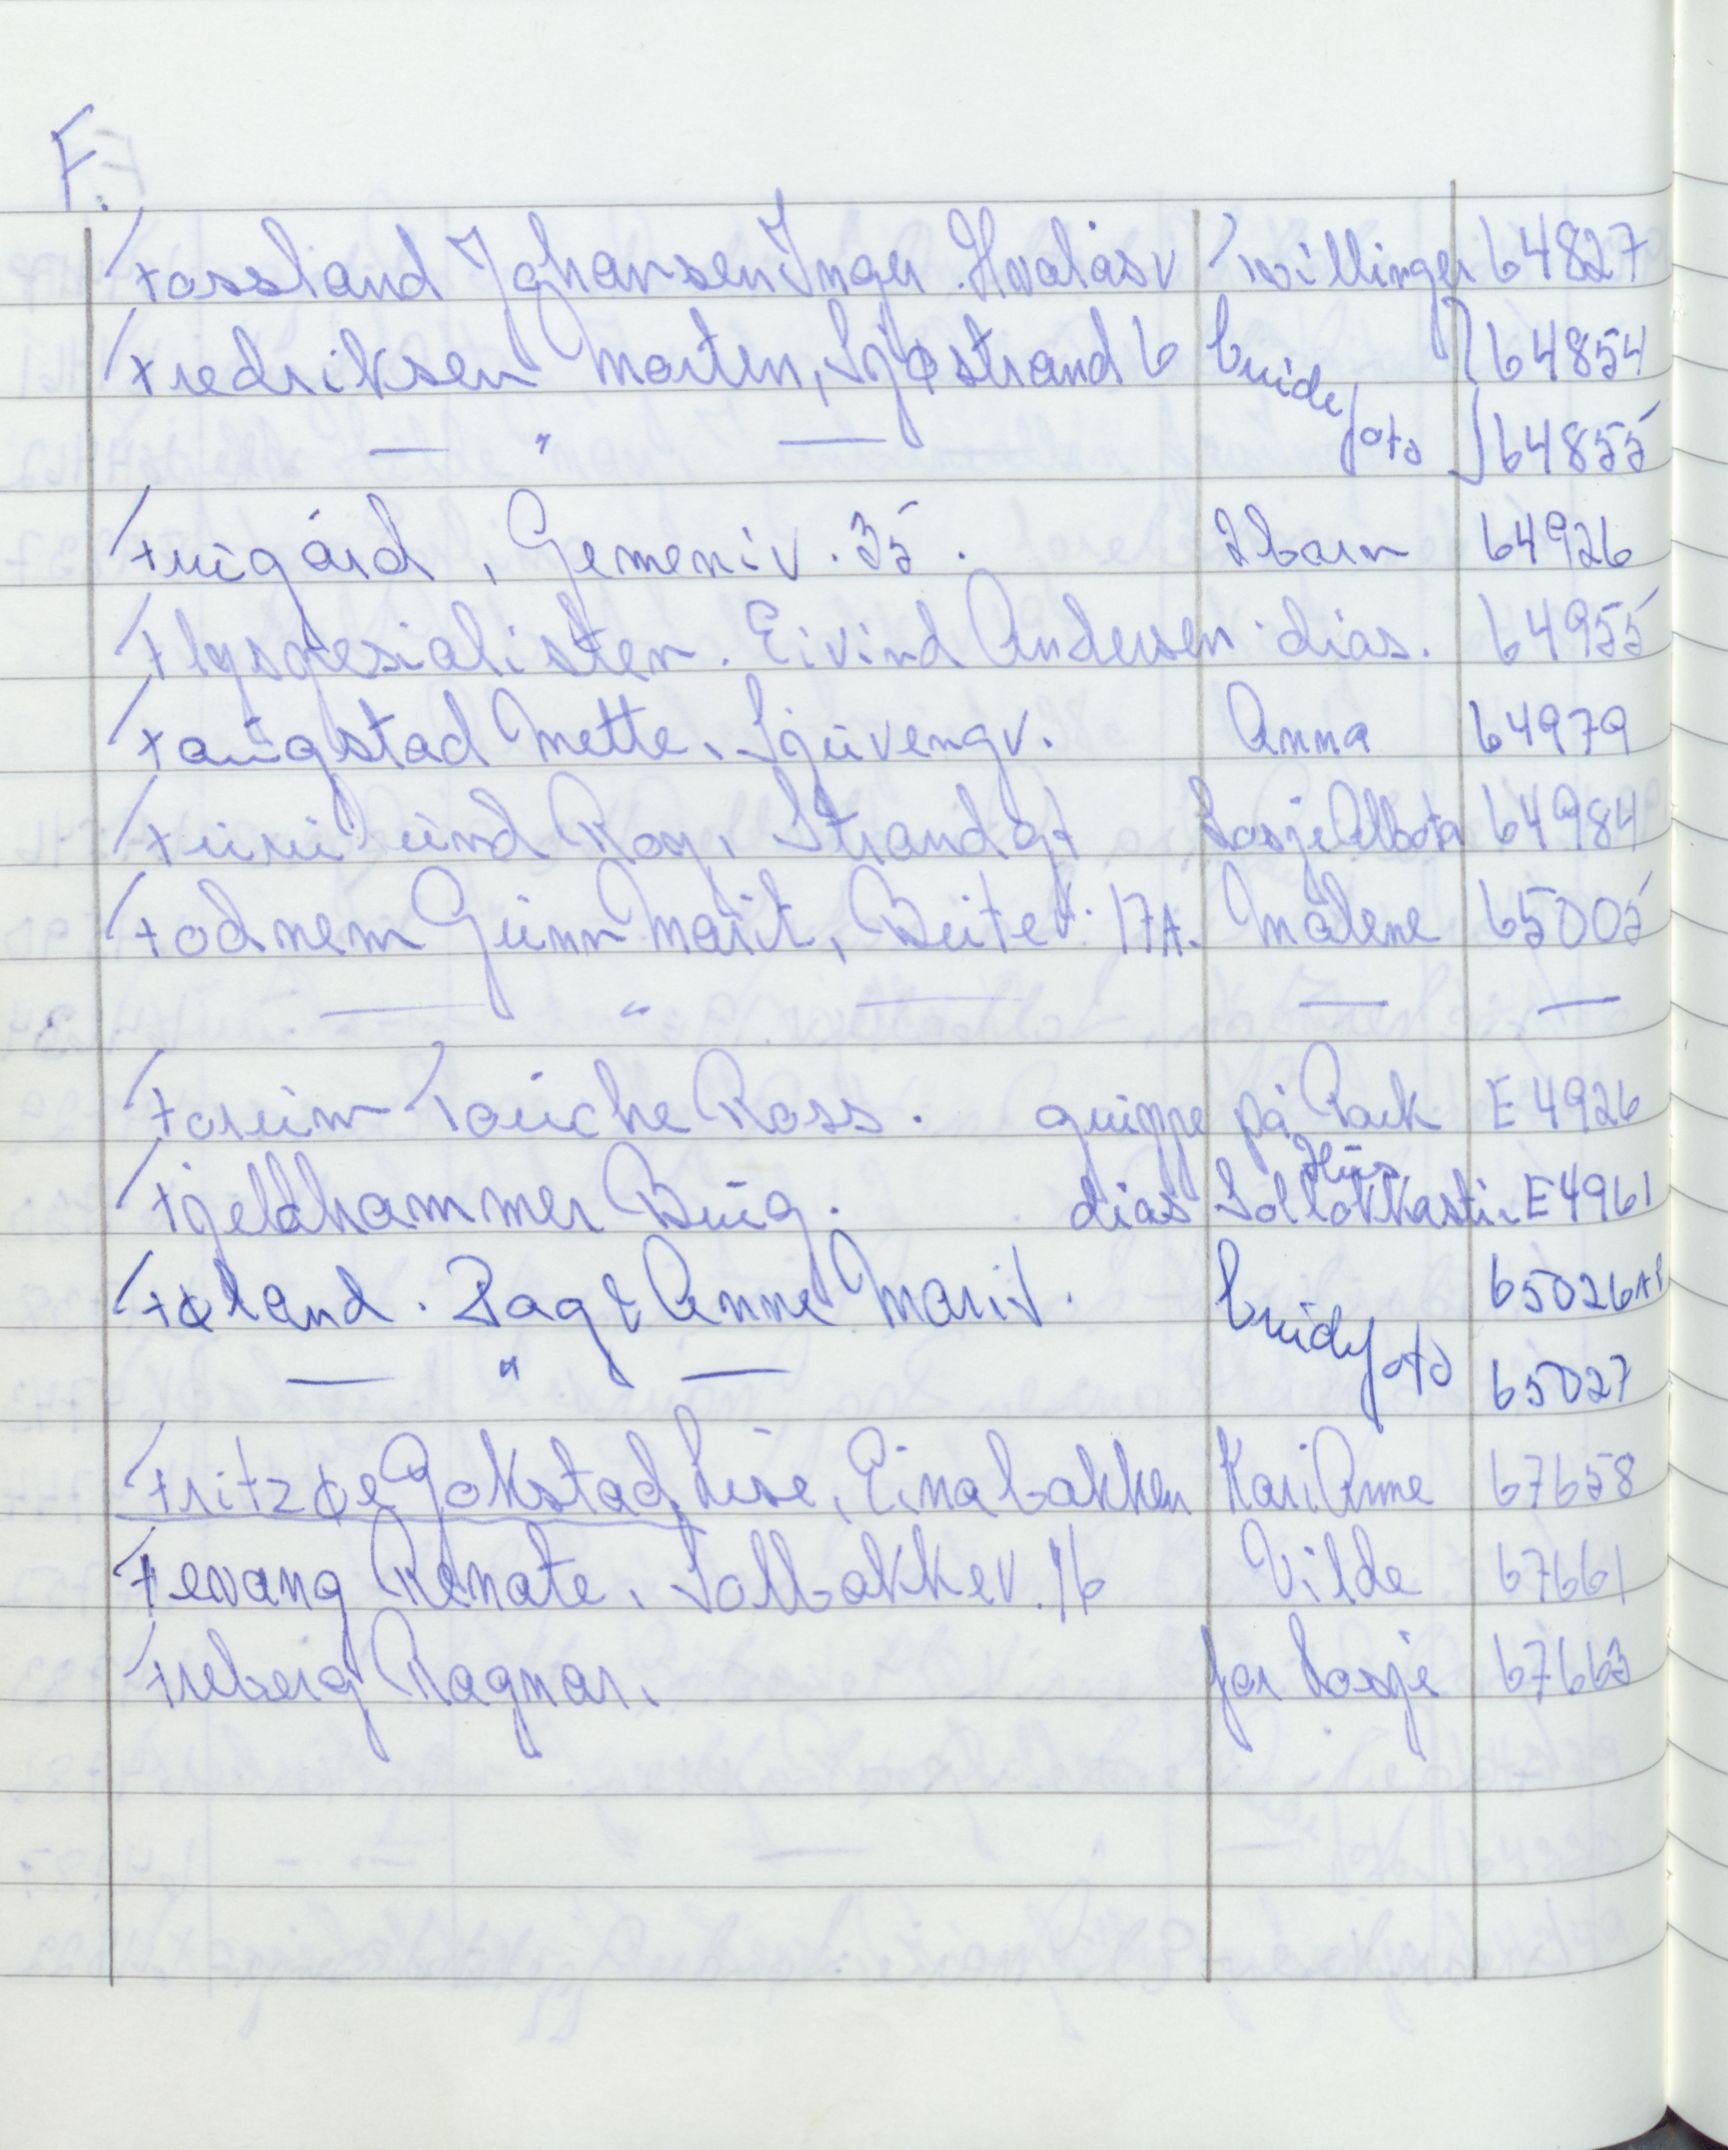 F.
Fossland Johansen Inger. Hvalåsv Tvillinger 64827
Fredriksen Morten, Sjøstrand 6 brudefoto 64854
— " — 64855
Furgård, Gemeniv. 35. 2barn 64926
Flyspesialisten. Eivind Andersen. dias. 64955
Faugstad Mette, Sjuvengv. Anna 64979
Furulund Roy, Strandgt Losje Albota 64984
Fodnem Gunn Marit, Beitev. 17A. Malene 65005
— " — — —
Forum Touche Ross. gruppe på Park E4926
Hus
Fjeldhammer Brug. dias Solløkkastir E4961
Føland. Dag & Anne Marit. brudefoto 65026
— " — 65027
Fritzøe Gokstad Lise, Einabakken Kari Anne 67658
Fevang Renate, Solbakkev. 16 Vilde 67661
Freberg Ragnar. for Losje 67663